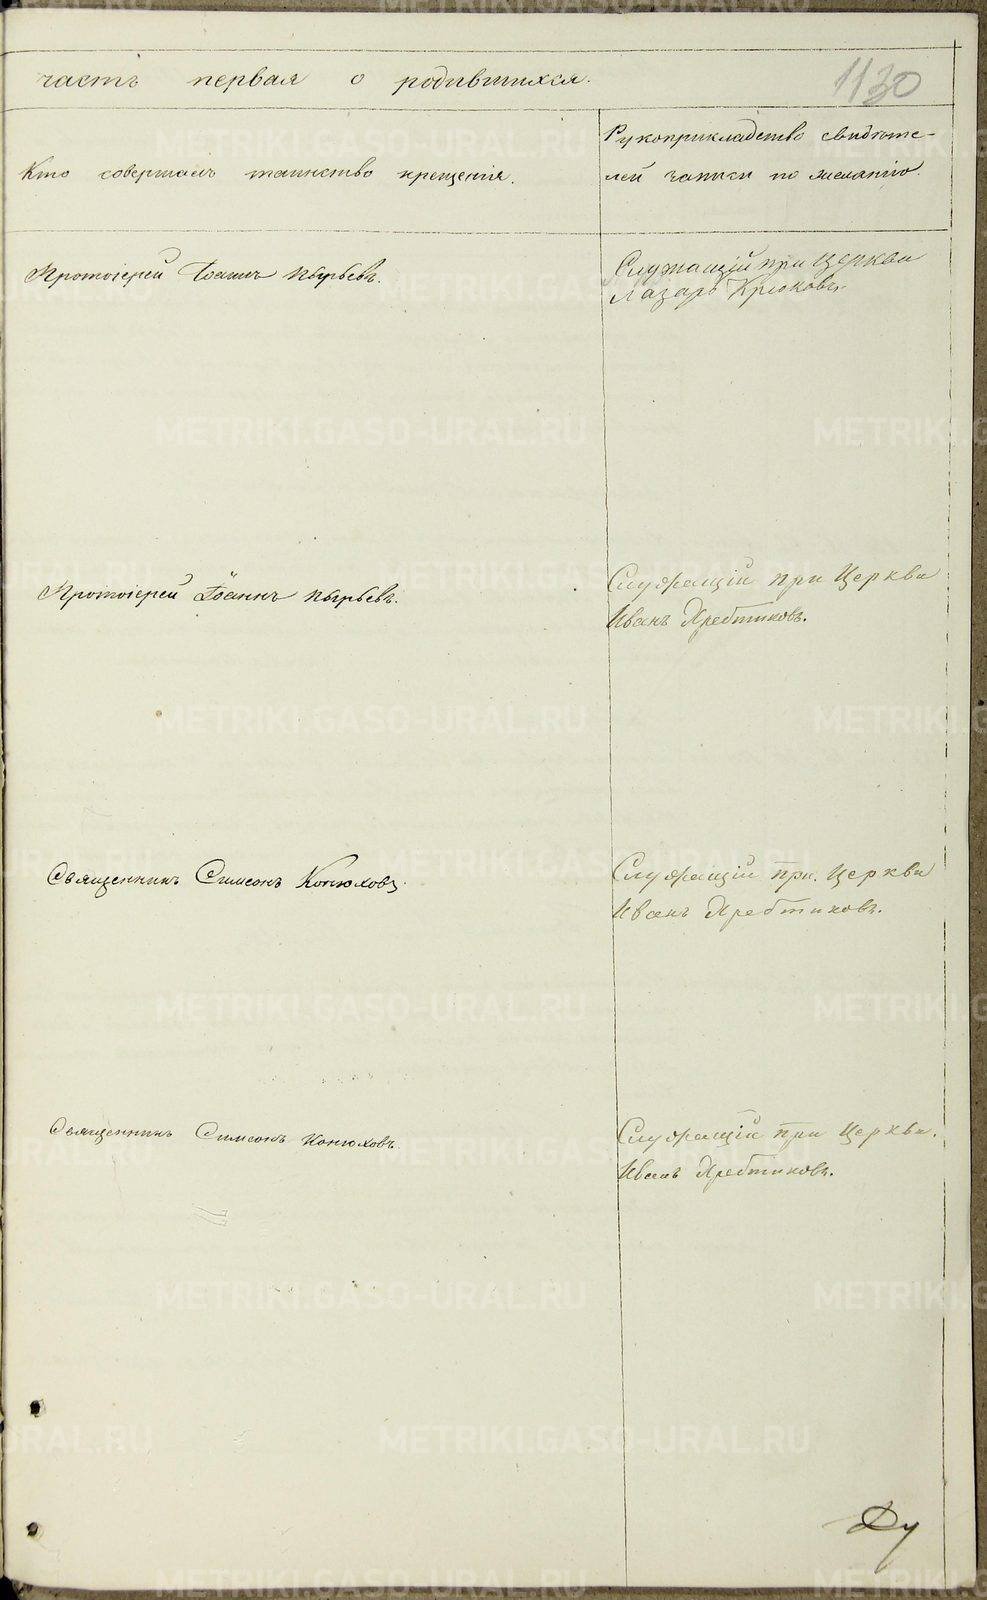 часть первая о родившихся.
1130
Кто совершалъ таинство крещенія.
Рукоприкладство свидѣте-
лей записи по желанію.
Протоіерей Іоаннъ Пырьевъ.
Служащій при Церкви
Лазарь Крюковъ.
Протоіерей Іоаннъ Пырьевъ.
Служащій при Церкви
Иванъ Хребтиковъ.
Священникъ Симеонъ Конюховъ.
Служащій при Церкви
Иванъ Хребтиковъ.
Священникъ Симеонъ Конюховъ
Служащій при Церкви.
Иванъ Хребтиковъ.
METRIKI.GASO-URAL.RU